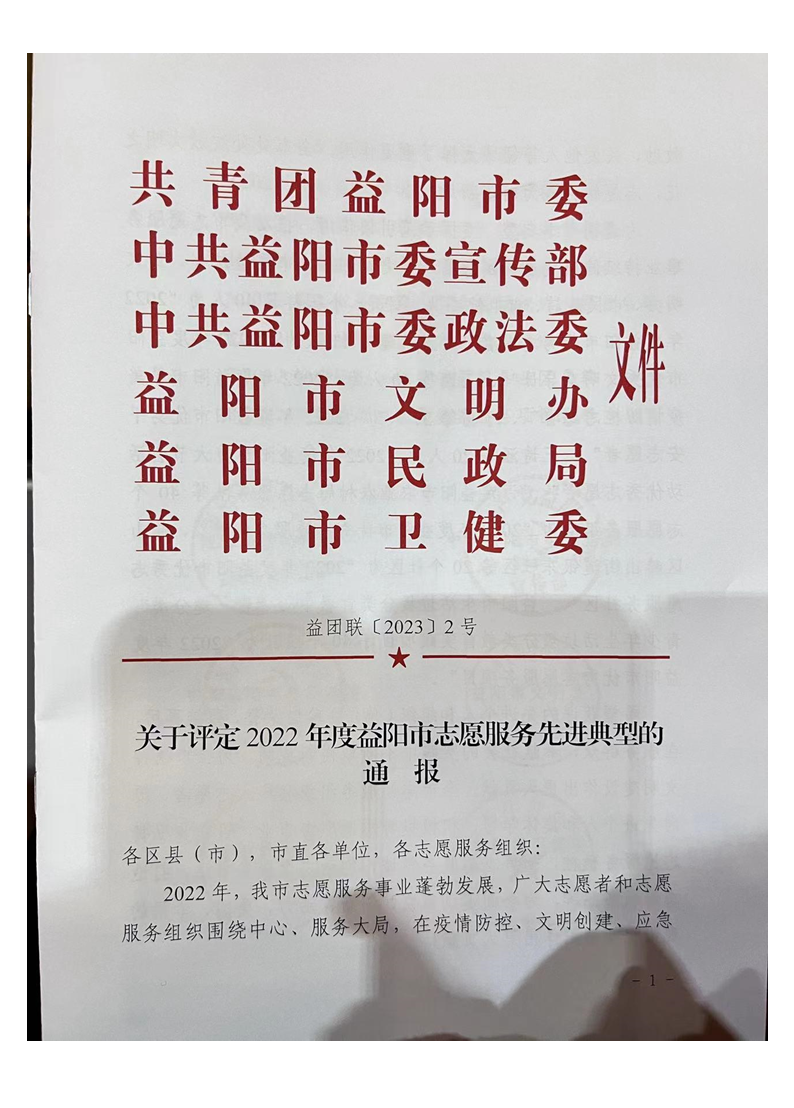 共青团益阳市委
中共益阳市委宣传部
中共益阳市委政法委
益阳市文明办
益阳市民政局
益阳市卫健委
文件
益团联〔2023〕2号
关于评定2022年度益阳市志愿服务先进典型的
通 报
各区县（市），市直各单位，各志愿服务组织：
2022年，我市志愿服务事业蓬勃发展，广大志愿者和志愿
服务组织围绕中心、服务大局，在疫情防控、文明创建、应急
- 1 -